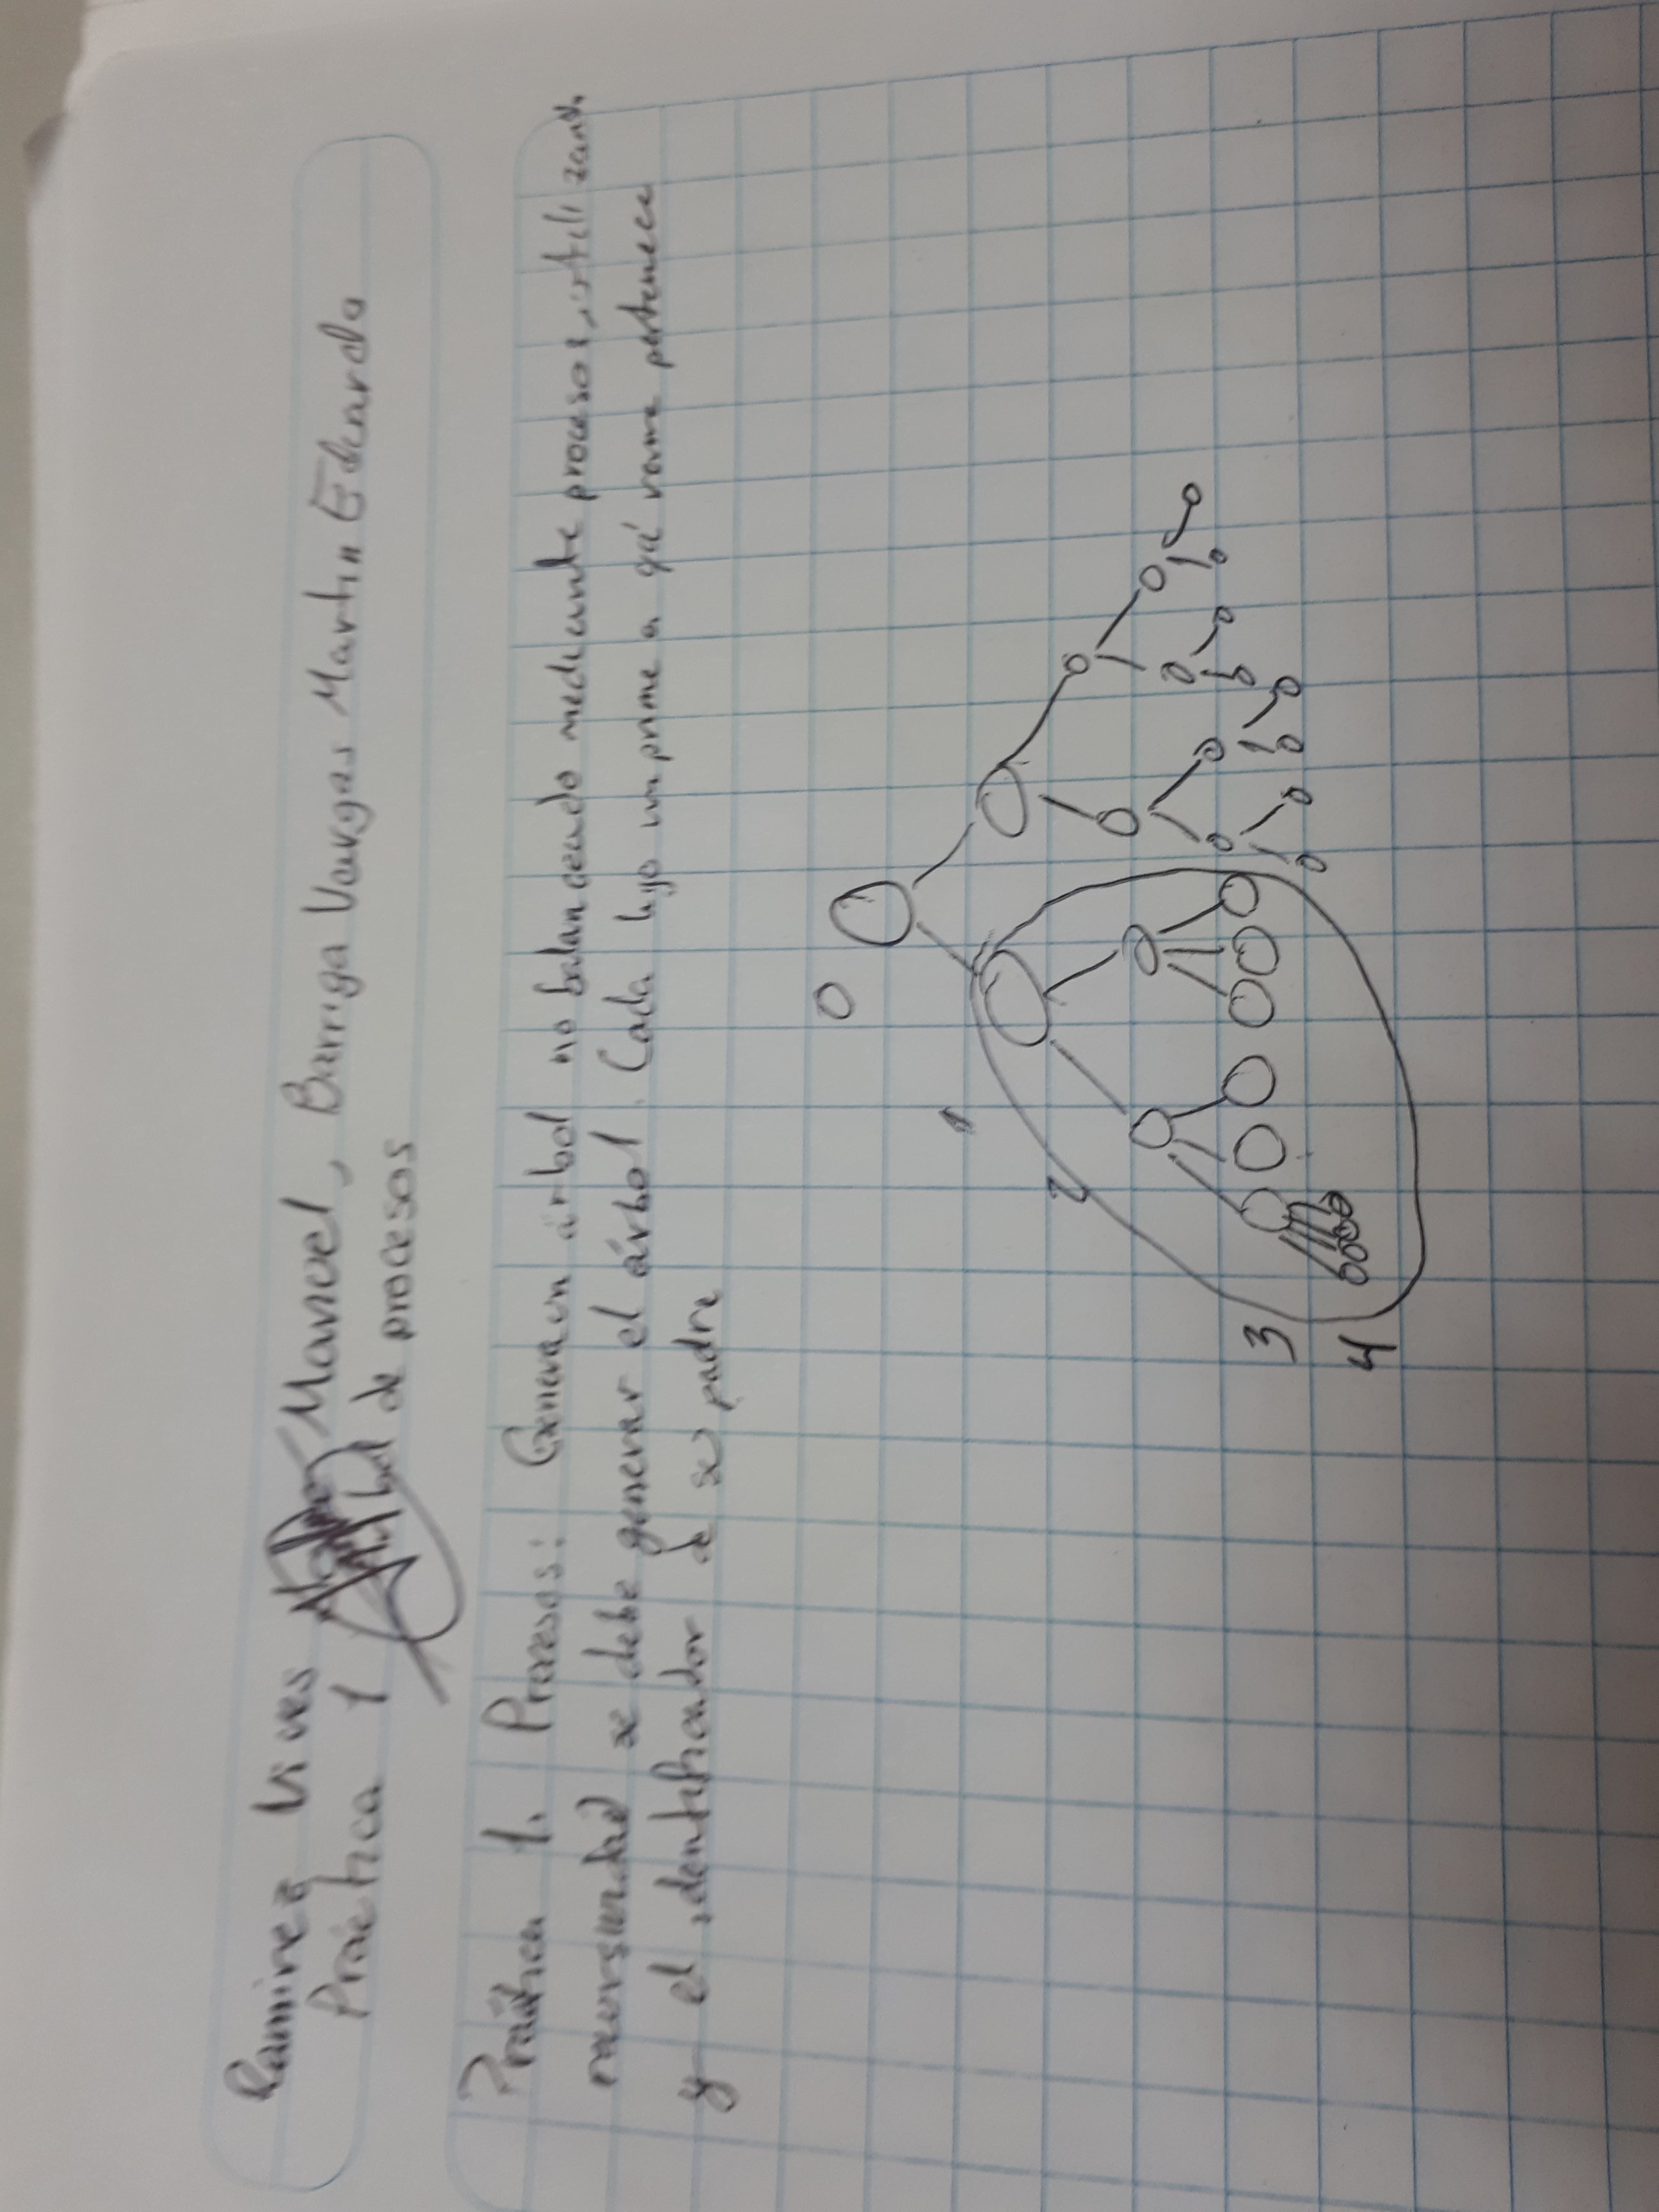 Ramirez Vives Manuel, Barriga Vargas Martin Eduardo
Práctica 1 Arbol de procesos
Práctica 1. Procesos: Genera un árbol no balanceado mediante procesos, utilizand.
recursividad se debe generar el árbol. Cada hijo imprime a qué rama pertenece
y el identificador de su padre
0
1
2
3
4